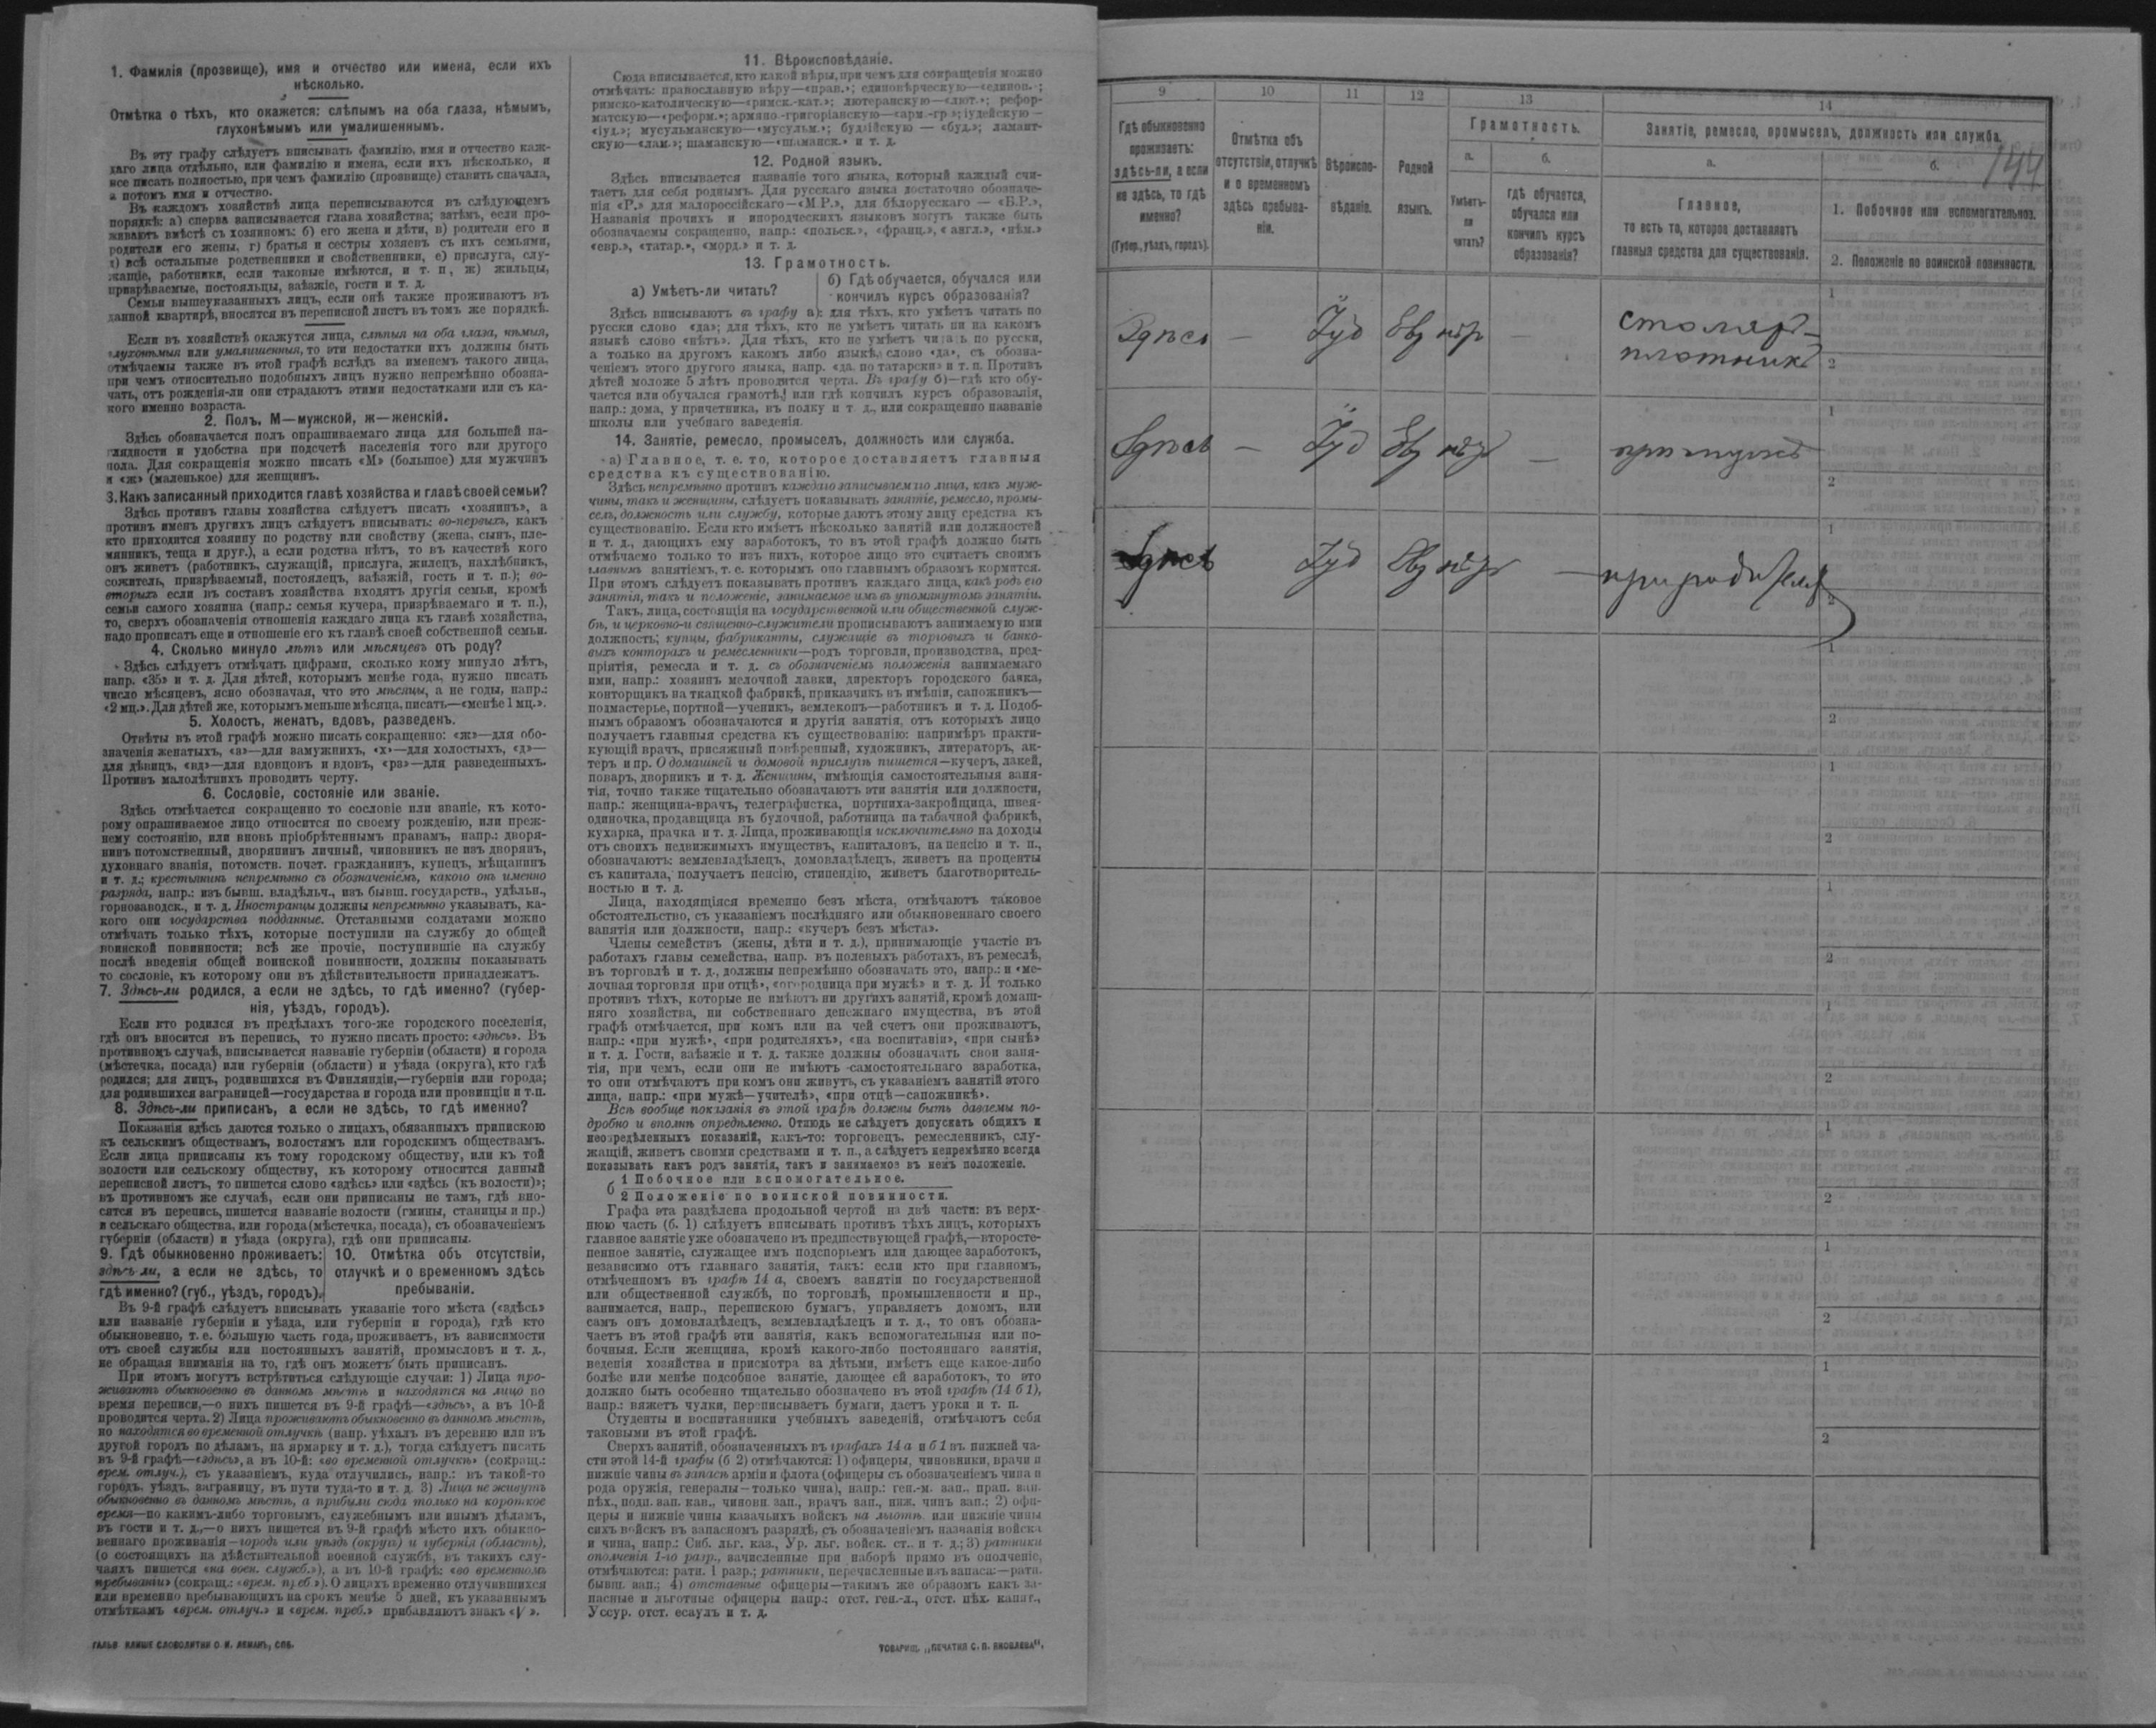 1. Фамилія (прозвище), имя и отчество или имена, если ихъ
нѣсколько.
Отмѣтка о тѣхъ, кто окажется: слѣпымъ на оба глаза, нѣмымъ,
глухонѣмымъ или умалишеннымъ.
Въ эту графу слѣдуетъ вписывать фамилію, имя и отчество каж-
даго лица отдѣльно, или фамилію и имена, если ихъ нѣсколько, и
все писать полностью, при чемъ фамилію (прозвище) ставить сначала,
а потомъ имя и отчество.
Въ каждомъ хозяйствѣ лица переписываются въ слѣдующемъ
порядкѣ: а) сперва записывается глава хозяйства; затѣмъ, если про-
живаютъ вмѣстѣ съ хозяиномъ: б) его жена и дѣти, в) родители его и
родители его жены, г) братья и сестры хозяевъ съ ихъ семьями,
д) всѣ остальные родственники и свойственники, е) прислуга, слу-
жащіе, работники, если таковые имѣются, и т. п, ж) жильцы,
призрѣваемые, постояльцы, заѣзжіе, гости и т. д.
Семьи вышеуказанныхъ лицъ, если онѣ также проживаютъ въ
данной квартирѣ, вносятся въ переписной листъ въ томъ же порядкѣ.
Если въ хозяйствѣ окажутся лица, слѣпыя на оба глаза, нѣмыя,
глухонѣмыя или умалишенныя, то эти недостатки ихъ должны быть
отмѣчаемы также въ этой графѣ вслѣдъ за именемъ такого лица,
при чемъ относительно подобныхъ лицъ нужно непремѣнно обозна-
чать, отъ рожденія-ли они страдаютъ этими недостатками или съ ка-
кого именно возраста.
2. Полъ. М—мужской, ж—женскій.
Здѣсь обозначается полъ опрашиваемаго лица для большей на-
глядности и удобства при подсчетѣ населенія того или другого
пола. Для сокращенія можно писать «М» (большое) для мужчинъ
и «ж» (маленькое) для женщинъ.
3. Какъ записанный приходится главѣ хозяйства и главѣ своей семьи?
Здѣсь противъ главы хозяйства слѣдуетъ писать «хозяинъ», а
противъ именъ другихъ лицъ слѣдуетъ вписывать: во-первыхъ, какъ
кто приходится хозяину по родству или свойству (жена, сынъ, пле-
мянникъ, теща и друг.), а если родства нѣтъ, то въ качествѣ кого
онъ живетъ (работникъ, служащій, прислуга, жилецъ, нахлѣбникъ,
сожитель, призрѣваемый, постоялецъ, заѣзжій, гость и т. п.); во-
вторыхъ если въ составъ хозяйства входятъ другія семьи, кромѣ
семьи самого хозяина (напр.: семья кучера, призрѣваемаго и т. п.),
то, сверхъ обозначенія отношенія каждаго лица къ главѣ хозяйства,
надо прописать еще и отношеніе его къ главѣ своей собственной семьи.
4. Сколько минуло лѣтъ или мѣсяцевъ отъ роду?
Здѣсь слѣдуетъ отмѣчать цифрами, сколько кому минуло лѣтъ,
напр. «35» и т. д. Для дѣтей, которымъ менѣе года, нужно писать
число мѣсяцевъ, ясно обозначая, что это мѣсяцы, а не годы, напр.:
«2 мц.». Для дѣтей же, которымъ меньше мѣсяца, писать—«менѣе 1 мц.».
5. Холостъ, женатъ, вдовъ, разведенъ.
Отвѣты въ этой графѣ можно писать сокращенно: «ж»—для обо-
значенія женатыхъ, «з»—для замужнихъ, «х»—для холостыхъ, «д»—
для дѣвицъ, «вд»—для вдовцовъ и вдовъ, «рз»—для разведенныхъ.
Противъ малолѣтнихъ проводить черту.
6. Сословіе, состояніе или званіе.
Здѣсь отмѣчается сокращенно то сословіе или званіе, къ кото-
рому опрашиваемое лицо относится по своему рожденію, или преж-
нему состоянію, или вновь пріобрѣтеннымъ правамъ, напр.: дворя-
нинъ потомственный, дворянинъ личный, чиновникъ не изъ дворянъ,
духовнаго званія, потомств. почет. гражданинъ, купецъ, мѣщанинъ
и т. д.; крестьянинъ непремѣнно съ обозначеніемъ, какого онъ именно
разряда, напр.: изъ бывш. владѣльч., изъ бывш. государств., удѣльн.,
горнозаводск., и т. д. Иностранцы должны непремѣнно указывать, ка-
кого они государства подданные. Отставными солдатами можно
отмѣчать только тѣхъ, которые поступили на службу до общей
воинской повинности; всѣ же прочіе, поступившіе на службу
послѣ введенія общей воинской повинности, должны показывать
то сословіе, къ которому они въ дѣйствительности принадлежатъ.
7. Здѣсь-ли родился, а если не здѣсь, то гдѣ именно? (губер-
нія, уѣздъ, городъ).
Если кто родился въ предѣлахъ того-же городского поселенія,
гдѣ онъ вносится въ перепись, то нужно писать просто: «здѣсь». Въ
противномъ случаѣ, вписывается названіе губерніи (области) и города
(мѣстечка, посада) или губерніи (области) и уѣзда (округа), кто гдѣ
родился; для лицъ, родившихся въ Финляндіи,—губерніи или города;
для родившихся заграницей—государства и города или провинціи и т.п.
8. Здѣсь-ли приписанъ, а если не здѣсь, то гдѣ именно?
Показанія здѣсь даются только о лицахъ, обязанныхъ припискою
къ сельскимъ обществамъ, волостямъ или городскимъ обществамъ.
Если лица приписаны къ тому городскому обществу, или къ той
волости или сельскому обществу, къ которому относится данный
переписной листъ, то пишется слово «здѣсь» или «здѣсь (къ волости)»;
въ противномъ же случаѣ, если они приписаны не тамъ, гдѣ вно-
сятся въ перепись, пишется названіе волости (гмины, станицы и пр.)
и сельскаго общества, или города (мѣстечка, посада), съ обозначеніемъ
губерніи (области) и уѣзда (округа), гдѣ они приписаны.
9. Гдѣ обыкновенно проживаетъ:
здѣсь-ли, а если не здѣсь, то
гдѣ именно? (губ., уѣздъ, городъ).
10. Отмѣтка объ отсутствіи,
отлучкѣ и о временномъ здѣсь
пребываніи.
Въ 9-й графѣ слѣдуетъ вписывать указаніе того мѣста («здѣсь»
или названіе губерніи и уѣзда, или губерніи и города), гдѣ кто
обыкновенно, т. е. большую часть года, проживаетъ, въ зависимости
отъ своей службы или постоянныхъ занятій, промысловъ и т. д.,
не обращая вниманія на то, гдѣ онъ можетъ быть приписанъ.
При этомъ могутъ встрѣтиться слѣдующіе случаи: 1) Лица про-
живаютъ обыкновенно въ данномъ мѣстѣ и находятся на лицо во
время переписи,—о нихъ пишется въ 9-й графѣ—«здѣсь», а въ 10-й
проводится черта. 2) Лица проживаютъ обыкновенно въ данномъ мѣстѣ,
но находятся во временной отлучкѣ (напр. уѣхалъ въ деревню или въ
другой городъ по дѣламъ, на ярмарку и т. д.), тогда слѣдуетъ писать
въ 9-й графѣ—«здѣсь», а въ 10-й: «во временной отлучкѣ» (сокращ.:
врем. отлуч.), съ указаніемъ, куда отлучились, напр.: въ такой-то
городъ, уѣздъ, заграницу, въ пути туда-то и т. д. 3) Лица не живутъ
обыкновенно въ данномъ мѣстѣ, а прибыли сюда только на короткое
время—по какимъ-либо торговымъ, служебнымъ или инымъ дѣламъ,
въ гости и т. д.,—о нихъ пишется въ 9-й графѣ мѣсто ихъ обыкно-
веннаго проживанія—городъ или уѣздъ (округъ) и губернія (область),
(о состоящихъ на дѣйствительной военной службѣ, въ такихъ слу-
чаяхъ пишется «на воен. служб.»), а въ 10-й графѣ: «во временномъ
пребываніи» (сокращ.: «врем. преб.»). О лицахъ временно отлучившихся
или временно пребывающихъ на срокъ менѣе 5 дней, къ указаннымъ
отмѣткамъ «врем. отлуч.» и «врем. преб.» прибавляютъ знакъ «V».
11. Вѣроисповѣданіе.
Сюда вписывается, кто какой вѣры, при чемъ для сокращенія можно
отмѣчать: православную вѣру—«прав.»; единовѣрческую—«единов.»;
римско-католическую—«римск.-кат.»; лютеранскую—«лют.»; рефор-
матскую—«реформ.»; армяно-григоріанскую—«арм.-гр.»; іудейскую—
«іуд.»; мусульманскую—«мусульм.»; буддійскую — «буд.»; ламаит-
скую—«лам.»; шаманскую—«шаманск.» и т. д.
12. Родной языкъ.
Здѣсь вписывается названіе того языка, который каждый счи-
таетъ для себя роднымъ. Для русскаго языка достаточно обозначе-
нія «Р.» для малороссійскаго—«М.Р.», для бѣлорусскаго — «Б.Р.»,
Названія прочихъ и инородческихъ языковъ могутъ также быть
обозначаемы сокращенно, напр.: «польск.», «франц.», «англ.», «нѣм.»
«евр.», «татар.», «морд.» и т. д.
13. Грамотность.
а) Умѣетъ-ли читать?
б) Гдѣ обучается, обучался или
кончилъ курсъ образованія?
Здѣсь вписываютъ въ графу а): для тѣхъ, кто умѣетъ читать по
русски слово «да»; для тѣхъ, кто не умѣетъ читать ни на какомъ
языкѣ слово «нѣтъ». Для тѣхъ, кто не умѣетъ читать по русски,
а только на другомъ какомъ либо языкѣ, слово «да», съ обозна-
ченіемъ этого другого языка, напр. «да, по татарски» и т. п. Противъ
дѣтей моложе 5 лѣтъ проводится черта. Въ графу б)—гдѣ кто обу-
чается или обучался грамотѣ, или гдѣ кончилъ курсъ образованія,
напр.: дома, у причетника, въ полку и т. д., или сокращенно названіе
школы или учебнаго заведенія.
14. Занятіе, ремесло, промыселъ, должность или служба.
а) Главное, т. е. то, которое доставляетъ главныя
средства къ существованію.
Здѣсь непремѣнно противъ каждаго записываемаго лица, какъ муж-
чины, такъ и женщины, слѣдуетъ показывать занятіе, ремесло, промы-
селъ, должность или службу, которые даютъ этому лицу средства къ
существованію. Если кто имѣетъ нѣсколько занятій или должностей
и т. д., дающихъ ему заработокъ, то въ этой графѣ должно быть
отмѣчаемо только то изъ нихъ, которое лицо это считаетъ своимъ
главнымъ занятіемъ, т. е. которымъ оно главнымъ образомъ кормится.
При этомъ слѣдуетъ показывать противъ каждаго лица, какъ родъ его
занятія, такъ и положеніе, занимаемое имъ въ упомянутомъ занятіи.
Такъ, лица, состоящія на государственной или общественной служ-
бѣ, и церковно-и священно-служители прописываютъ занимаемую ими
должность; купцы, фабриканты, служащіе въ торговыхъ и банко-
выхъ конторахъ и ремесленники—родъ торговли, производства, пред-
пріятія, ремесла и т. д. съ обозначеніемъ положенія занимаемаго
ими, напр.: хозяинъ мелочной лавки, директоръ городского банка,
конторщикъ на ткацкой фабрикѣ, приказчикъ въ имѣніи, сапожникъ—
подмастерье, портной—ученикъ, землекопъ—работникъ и т. д. Подоб-
нымъ образомъ обозначаются и другія занятія, отъ которыхъ лицо
получаетъ главныя средства къ существованію: напримѣръ практи-
кующій врачъ, присяжный повѣренный, художникъ, литераторъ, ак-
теръ и пр. О домашней и домовой прислугѣ пишется—кучеръ, лакей,
поваръ, дворникъ и т. д. Женщины, имѣющія самостоятельныя заня-
тія, точно также тщательно обозначаютъ эти занятія или должности,
напр.: женщина-врачъ, телеграфистка, портниха-закройщица, швея-
одиночка, продавщица въ булочной, работница на табачной фабрикѣ,
кухарка, прачка и т. д. Лица, проживающія исключительно на доходы
отъ своихъ недвижимыхъ имуществъ, капиталовъ, на пенсію и т. п.,
обозначаютъ: землевладѣлецъ, домовладѣлецъ, живетъ на проценты
съ капитала, получаетъ пенсію, стипендію, живетъ благотворитель-
ностью и т. д.
Лица, находящіяся временно безъ мѣста, отмѣчаютъ таковое
обстоятельство, съ указаніемъ послѣдняго или обыкновеннаго своего
занятія или должности, напр.: «кучеръ безъ мѣста».
Члены семействъ (жены, дѣти и т. д.), принимающіе участіе въ
работахъ главы семейства, напр. въ полевыхъ работахъ, въ ремеслѣ,
въ торговлѣ и т. д., должны непремѣнно обозначать это, напр.: и «ме-
лочная торговля при отцѣ», «огородница при мужѣ» и т. д. И только
противъ тѣхъ, которые не имѣютъ ни другихъ занятій, кромѣ домаш-
няго хозяйства, ни собственнаго денежнаго имущества, въ этой
графѣ отмѣчается, при комъ или на чей счетъ они проживаютъ,
напр.: «при мужѣ», «при родителяхъ», «на воспитаніи», «при сынѣ»
и т. д. Гости, заѣзжіе и т. д. также должны обозначать свои заня-
тія, при чемъ, если они не имѣютъ самостоятельнаго заработка,
то они отмѣчаютъ при комъ они живутъ, съ указаніемъ занятій этого
лица, напр.: «при мужѣ—учителѣ», «при отцѣ—сапожникѣ».
Всѣ вообще показанія въ этой графѣ должны быть даваемы по-
дробно и вполнѣ опредѣленно. Отнюдь не слѣдуетъ допускать общихъ и
неопредѣленныхъ показаній, какъ-то: торговецъ, ремесленникъ, слу-
жащій, живетъ своими средствами и т. п., а слѣдуетъ непремѣнно всегда
показывать какъ родъ занятія, такъ и занимаемое въ немъ положеніе.
б 1 Побочное или вспомогательное.
2 Положеніе по воинской повинности.
Графа эта раздѣлена продольной чертой на двѣ части: въ верх-
нюю часть (б. 1) слѣдуетъ вписывать противъ тѣхъ лицъ, которыхъ
главное занятіе уже обозначено въ предшествующей графѣ,—второсте-
пенное занятіе, служащее имъ подспорьемъ или дающее заработокъ,
независимо отъ главнаго занятія, такъ: если кто при главномъ,
отмѣченномъ въ графѣ 14 а, своемъ занятіи по государственной
или общественной службѣ, по торговлѣ, промышленности и пр.,
занимается, напр., перепискою бумагъ, управляетъ домомъ, или
самъ онъ домовладѣлецъ, землевладѣлецъ и т. д., то онъ обозна-
чаетъ въ этой графѣ эти занятія, какъ вспомогательныя или по-
бочныя. Если женщина, кромѣ какого-либо постояннаго занятія,
веденія хозяйства и присмотра за дѣтьми, имѣетъ еще какое-либо
болѣе или менѣе подсобное занятіе, дающее ей заработокъ, то это
должно быть особенно тщательно обозначено въ этой графѣ (14 б 1),
напр.: вяжетъ чулки, переписываетъ бумаги, даетъ уроки и т. п.
Студенты и воспитанники учебныхъ заведеній, отмѣчаютъ себя
таковыми въ этой графѣ.
Сверхъ занятій, обозначенныхъ въ графахъ 14 а и б 1 въ нижней ча-
сти этой 14-й графы (б 2) отмѣчаются: 1) офицеры, чиновники, врачи и
нижніе чины въ запасѣ арміи и флота (офицеры съ обозначеніемъ чина и
рода оружія, генералы—только чина), напр.: ген.-м. зап., прап. зап.
пѣх., подп. зап. кав., чиновн. зап., врачъ зап., ниж. чинъ зап.; 2) офи-
церы и нижніе чины казачьихъ войскъ на льготѣ или нижніе чины
сихъ войскъ въ запасномъ разрядѣ, съ обозначеніемъ названія войска
и чина, напр.: Сиб. льг. каз., Ур. льг. войск. ст. и т. д.; 3) ратники
ополченія 1-го разр., зачисленные при наборѣ прямо въ ополченіе,
отмѣчаются: ратн. 1 разр.; ратники, перечисленные изъ запаса:—ратн.
бывш. зап.; 4) отставные офицеры—такимъ же образомъ какъ за-
пасные и льготные офицеры напр.: отст. ген.-л., отст. пѣх. капит.,
Уссур. отст. есаулъ и т. д.
ГАЛЬВ КЛИШЕ СЛОВОЛИТНИ О. И. ЛЕМАНЪ, СПБ.
ТОВАРИЩ. „ПЕЧАТНЯ С. П. ЯКОВЛЕВА“.
144
9 10 11 12 13 14
Гдѣ обыкновенно
проживаетъ:
здѣсь-ли, а если
не здѣсь, то гдѣ
именно?
(Губер., уѣздъ, городъ).
Отмѣтка объ
отсутствіи, отлучкѣ
и о временномъ
здѣсь пребыва-
ніи.
Вѣроиспо-
вѣданіе.
Родной
языкъ.
Грамотность.
а.
Умѣетъ-
ли
читать?
б.
гдѣ обучается,
обучался или
кончилъ курсъ
образованія?
Занятіе, ремесло, промыселъ, должность или служба.
а.
Главное,
то есть то, которое доставляетъ
главныя средства для существованія.
б.
1. Побочное или вспомогательное.
2. Положеніе по воинской повинности.
Здѣсь — Іуд Евр нѣт — столяр- 1
плотникъ 2
Здѣсь — Іуд Евр нѣт — при мужѣ 1
2
Здѣсь Іуд Евр нѣт — при родителях 1
2
1
2
1
2
1
2
1
2
1
2
1
2
1
2